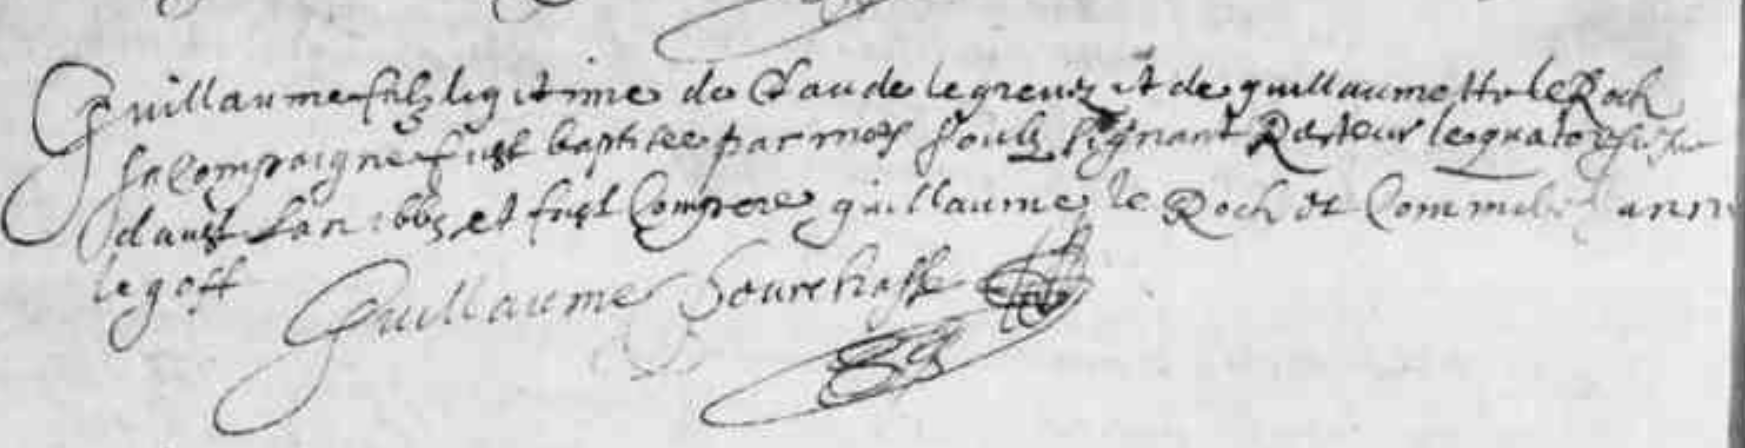 Guillaume filz legitime de Claude legreuz et de guillaumette le Roch
sa Compaigne fust baptisee par moy soubz signant Recteur le quatorze
d'aust l'an 1665 et fust Compere guillaume le Roch et Comme ann
le goff
Guillaume